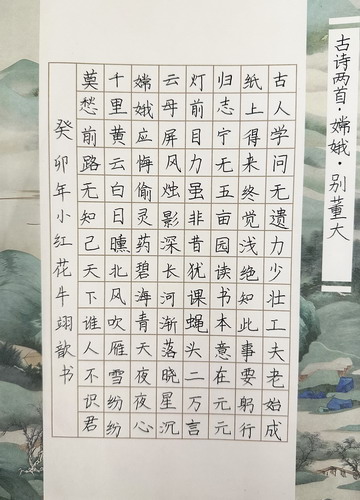 古诗两首·嫦娥·别董大
古人学问无遗力少壮工夫老始成
纸上得来终觉浅绝知此事要躬行
归志宁无五亩园读书本意在元元
灯前目力虽非昔犹课蝇头二万言
云母屏风烛影深长河渐落晓星沉
嫦娥应悔偷灵药碧海青天夜夜心
千里黄云白日曛北风吹雁雪纷纷
莫愁前路无知己天下谁人不识君
癸卯年小红花牛翊歆书